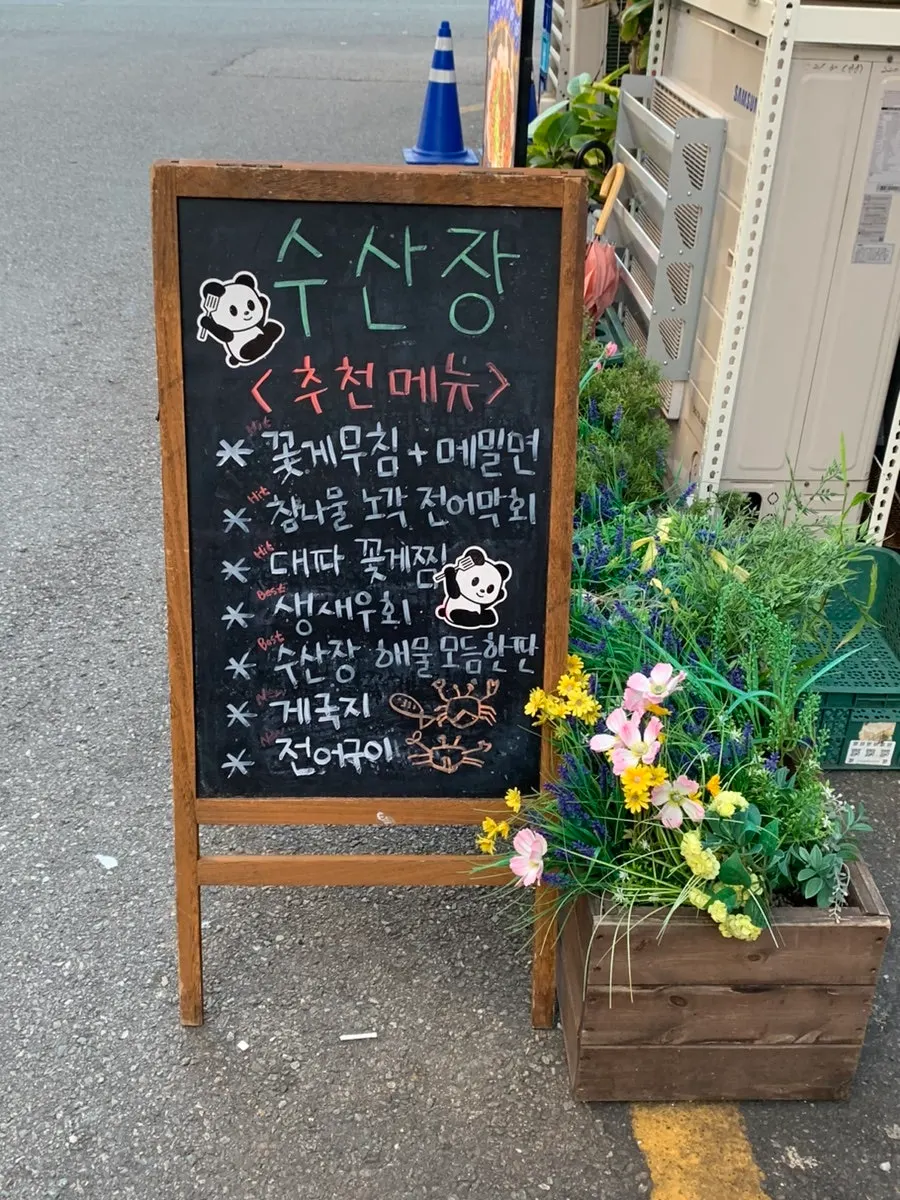 수산장
<추천메뉴>
Hit
* 꽃게무침 + 메밀면
Hit
* 참나물 노각 전어막회
Hit
* 대파 꽃게찜
Best
* 생새우회
Best
* 수산장 해물모듬한판
New
* 게국지
* 전어구이
SAMSUNG